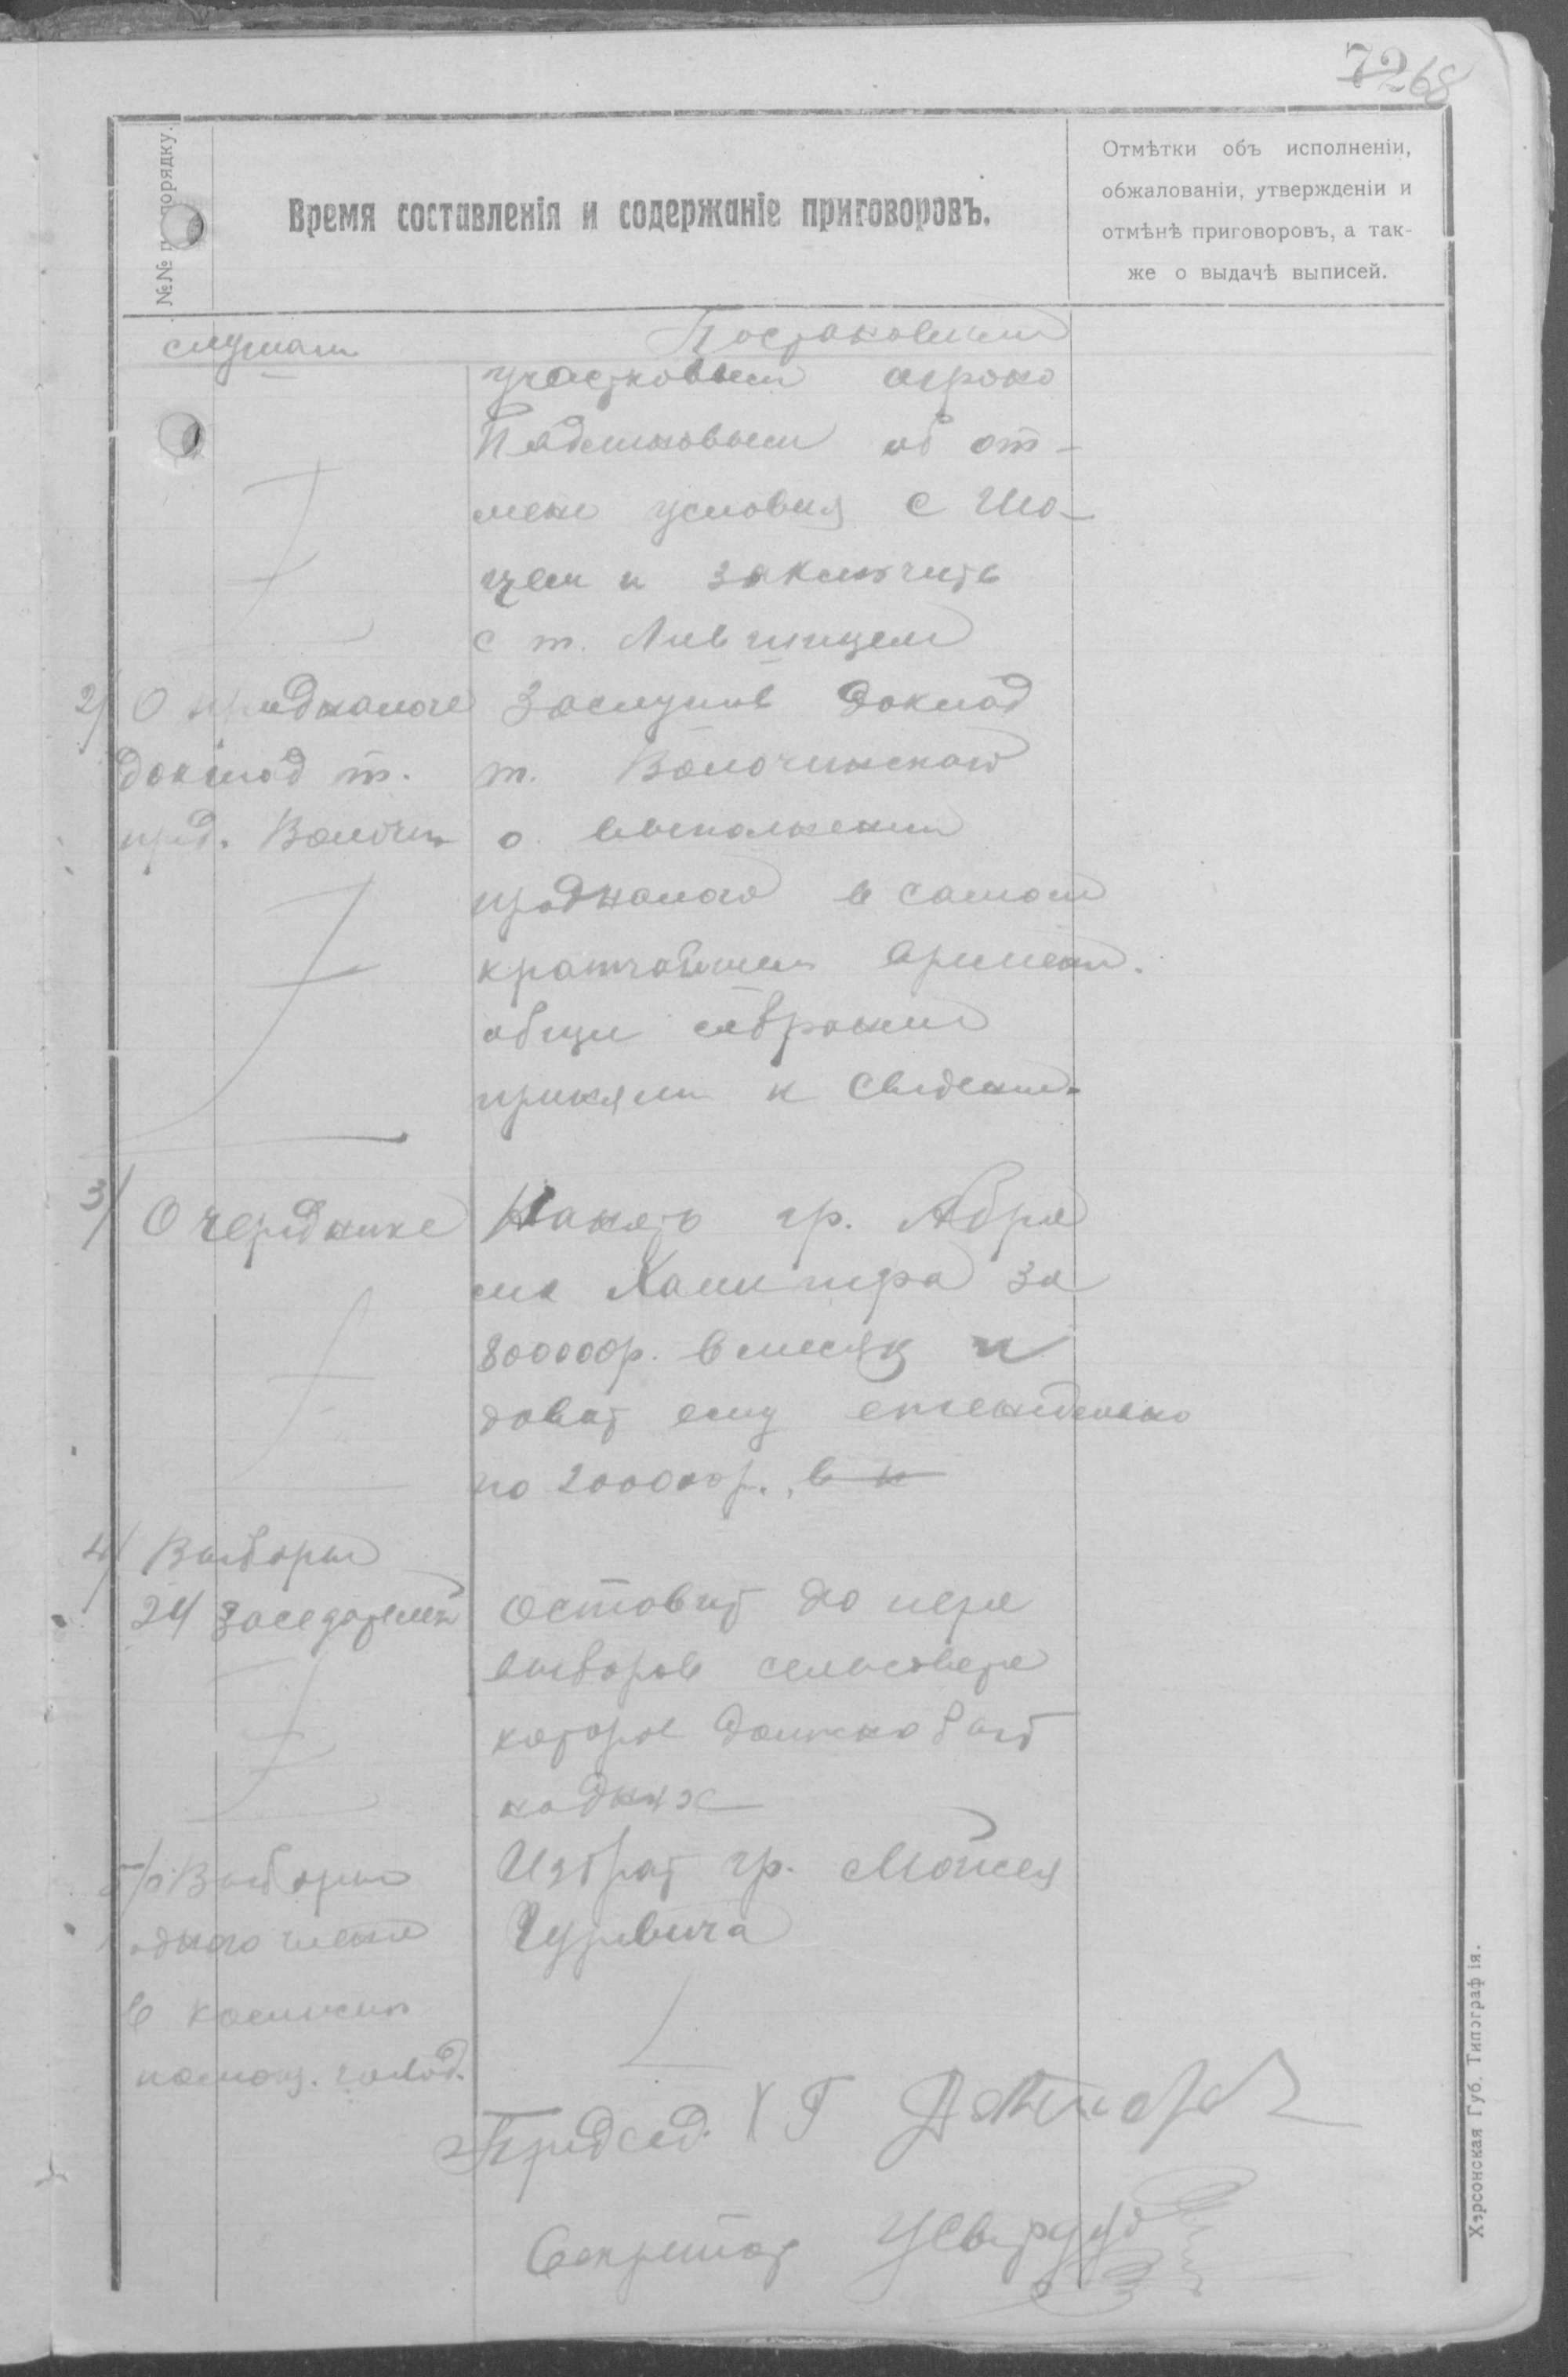 72 68
№№ по порядку.
Время составленія и содержаніе приговоровъ.
Отмѣтки объ исполненіи,
обжалованіи, утвержденіи и
отмѣнѣ приговоровъ, а так-
же о выдачѣ выписей.
слушали
Постановили
участковым агроно
об от-
мене условия с Шо-
цем и заключить
с т. Лившицем
2/ О продналоге
доклад т.
пред. Волочин
Заслушив доклад
т. Волочинского
о выполнении
продналога в самом
кратчайшем времени.
общи собрание
приняли к сведению.
3/ О чередники
Нанять гр. Абра
ма Хаммитра за
800000р. в месяц и
дават ему еженедельно
по 200000р., в н
4/ Выборы
24 заседателей
Оставит до пере
выборов сельсовета
которое должно быт
на днях
5/ Выборы
одного члена
в комисию
помощ. голод.
Избрат гр. Мойсея
Гуревича
Председ.
Секретар
Херсонская Губ. Типографія.